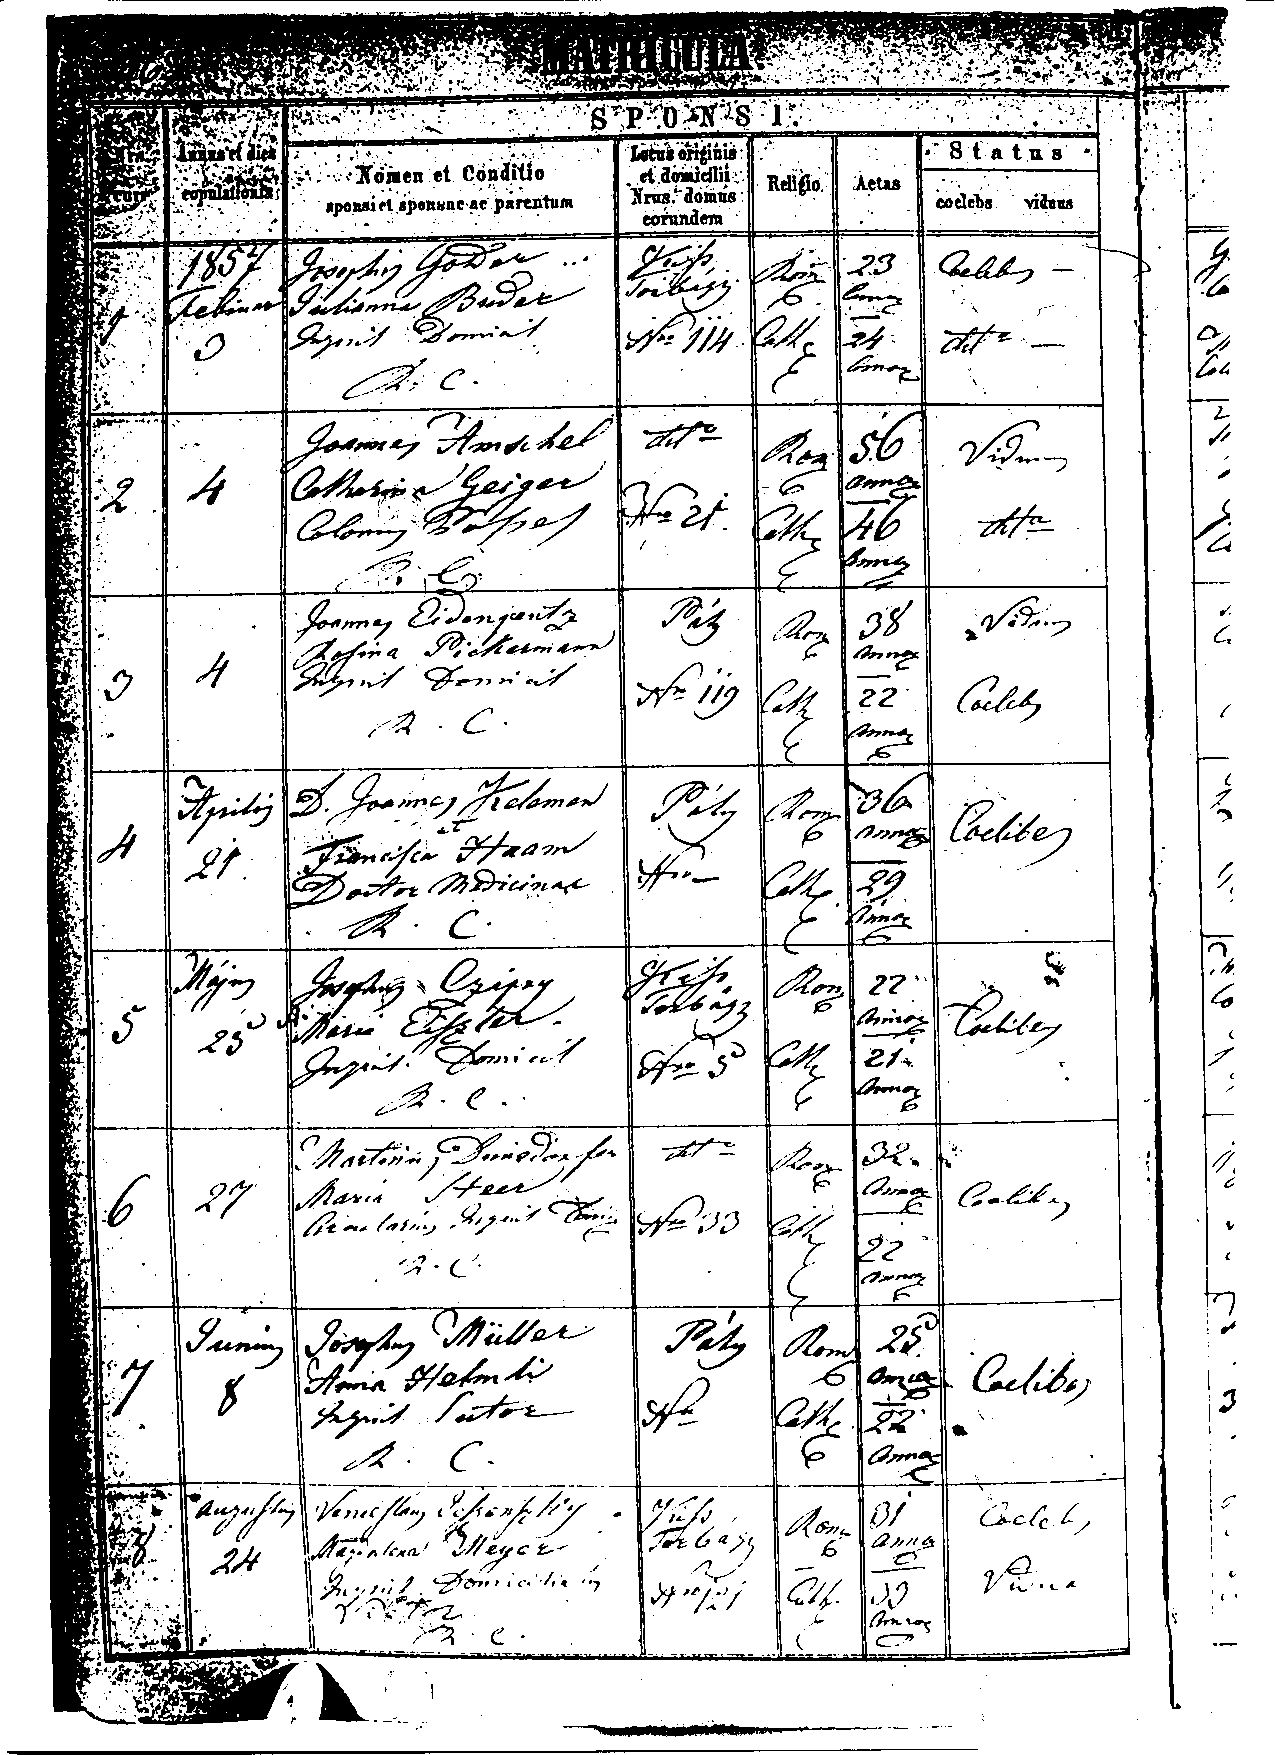 MATRICULA
SPONSI.
Nrus curr.
Annus et dies copulationis
Nomen et Conditio
sponsi et sponsae ac parentum
Locus originis
et domicilii
Nrus. domus
eorundem
Religio
Aetas
Status
coelebs viduus
1
1857
Februar
3
Josephus Goder
Julianna Buder
Inquil Domicil
R. C.
Kiss
Torbágy
Nro 114
Rom
Cath
23
annor
24
annor
Coelebs —
dtto —
2
4
Joannes Amschel
Catharina Geiger
Colonus
R. C.
dtto
Nro 21.
Rom
Cath
56
annor
46
annor
Viduus
dtta
3
4
Joannes
Rosina Pickermann
Inquil Domicil
R. C.
Páty
Nro 119
Rom
Cath
38
annor
22
annor
Viduus
Coelebs
4
Aprilis
21.
D. Joannes Kelemen
et
Francisca Haam
Doctor Medicinae
R. C.
Páty
Nro —
Rom
Cath
36
annor
29
annor
Coelibes
5
Május
25
Josephus Czipry
Maria
Inquil. Domicil
R. C.
Kiss
Torbágy
Nro 5
Rom
Cath
22
annor
21
annor
Coelibes
6
27
Martinus
Maria Steer
Inquil
R. C.
dtto
Nro 33
Rom
Cath
32
annor
22
annor
Coelibes
7
Junius
8
Josephus Müller
Anna Helmli
Inquil Sutor
R. C.
Páty
Nro
Rom
Cath
25
annor
22
annor
Coelibes
8
Augustus
24
Magdalena Meyer
Inquil Domicilia
R. C.
Kiss
Torbágy
Nro 121
Rom
Cath.
31
anno
33
annor
Coelebs
Vidua